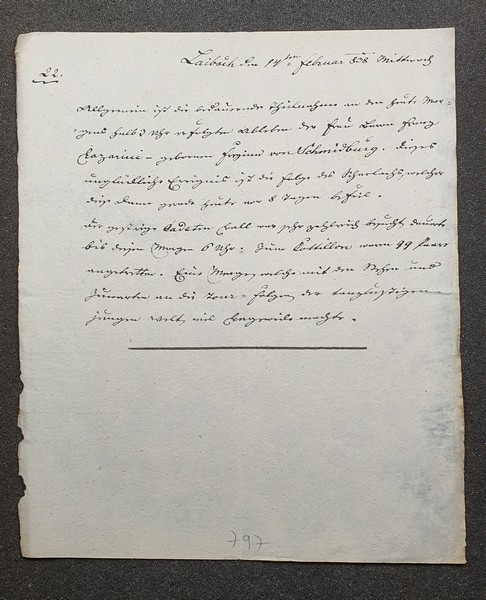 22.
Laibach den 14ten Februar 838 Mittwoch
Allgemein ist die bedauernde Theilnahme an den heute Mor=
gens halb 3 Uhr erfolgten Ableben der Frau Baron Franz
Lazarini – gebornen Freyinn von Schmidburg. Dieses
unglückliche Ereignis ist die Folge des Scharlachs, welcher
diese Dame gerade heute vor 8 Tagen befiel.
Der gestrige Cadeten Ball war sehr zahlreich besucht, dauerte
bis diesen Morgen 6 Uhr; zum Cottillon waren 99 Paare
angetretten. Eine Menge, welche mit den Stehen und
Zuwarten an die Tour-Folgen der tanzlustigen
jungen Welt, viel Langeweile machte.
797